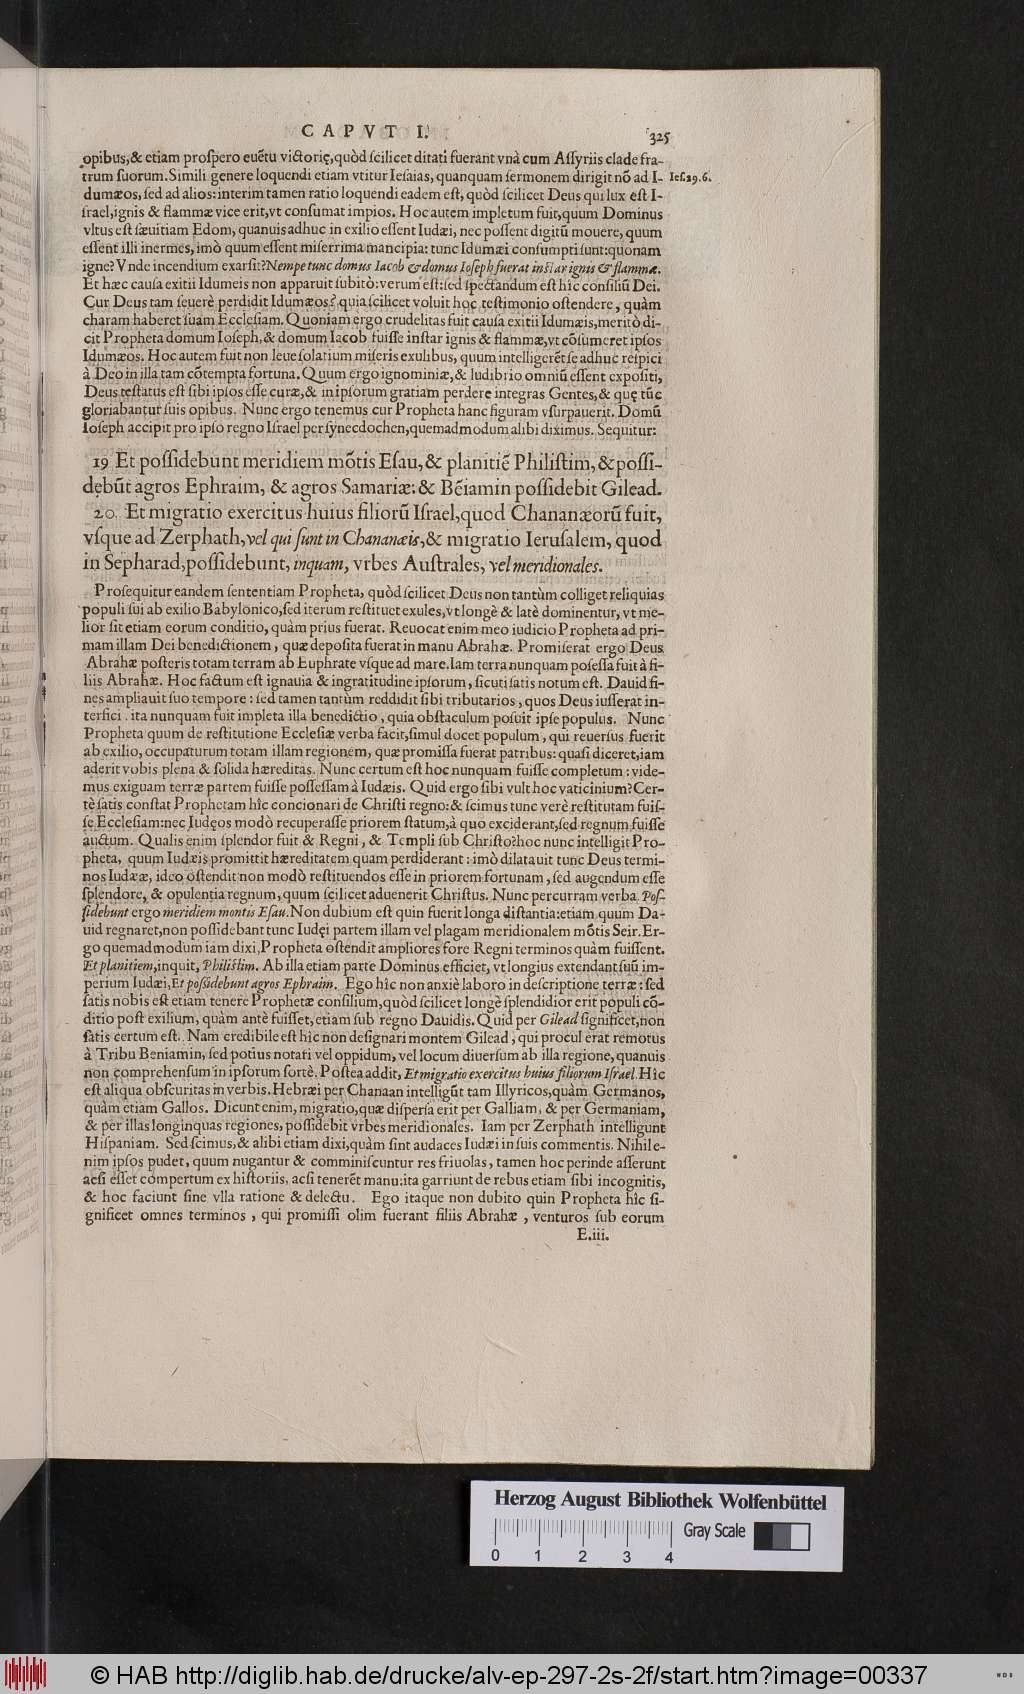 CAPVT I. 325
opibus,& etiam prospero euētu victorię,quòd scilicet ditati fuerant vnà cum Assyriis clade fra-
trum suorum.Simili genere loquendi etiam vtitur Iesaias, quanquam sermonem dirigit nō ad I- Ies.29.6.
dumæos,sed ad alios:interim tamen ratio loquendi eadem est, quòd scilicet Deus qui lux est I-
srael,ignis & flammæ vice erit,vt consumat impios. Hoc autem impletum fuit,quum Dominus
vltus est sæuitiam Edom, quanuis adhuc in exilio essent Iudæi, nec possent digitū mouere, quum
essent illi inermes, imò quum essent miserrima mancipia: tunc Idumæi consumpti sunt:quonam
igne? Vnde incendium exarsit?Nempe tunc domus Iacob & domus Ioseph fuerat instar ignis & flammæ.
Et hæc causa exitii Idumeis non apparuit subitò:verum est:sed spectandum est hîc consiliū Dei.
Cur Deus tam seuerè perdidit Idumæos? quia scilicet voluit hoc testimonio ostendere, quàm
charam haberet suam Ecclesiam. Quoniam ergo crudelitas fuit causa exitii Idumæis,meritò di-
cit Propheta domum Ioseph,& domum Iacob fuisse instar ignis & flammæ,vt cōsumeret ipsos
Idumæos. Hoc autem fuit non leue solatium miseris exulibus, quum intelligerēt se adhuc respici
à Deo in illa tam cōtempta fortuna. Quum ergo ignominiæ,& ludibrio omniū essent expositi,
Deus testatus est sibi ipsos esse curæ,& in ipsorum gratiam perdere integras Gentes,& quę tūc
gloriabantur suis opibus. Nunc ergo tenemus cur Propheta hanc figuram vsurpauerit. Domū
Ioseph accipit pro ipso regno Israel per synecdochen,quemadmodum alibi diximus. Sequitur:
19 Et possidebunt meridiem mōtis Esau,& planitiē Philistim,& possi-
debūt agros Ephraim, & agros Samariæ: & Bēiamin possidebit Gilead.
20. Et migratio exercitus huius filiorū Israel,quod Chananæorū fuit,
vsque ad Zerphath,vel qui sunt in Chananæis,& migratio Ierusalem, quod
in Sepharad,possidebunt, inquam, vrbes Australes, vel meridionales.
Prosequitur eandem sententiam Propheta, quòd scilicet Deus non tantùm colliget reliquias
populi sui ab exilio Babylonico,sed iterum restituet exules,vt longè & latè dominentur, vt me-
lior sit etiam eorum conditio, quàm prius fuerat. Reuocat enim meo iudicio Propheta ad pri-
mam illam Dei benedictionem, quæ deposita fuerat in manu Abrahæ. Promiserat ergo Deus
Abrahæ posteris totam terram ab Euphrate vsque ad mare.Iam terra nunquam posessa fuit à fi-
liis Abrahæ. Hoc factum est ignauia & ingratitudine ipsorum, sicuti satis notum est. Dauid fi-
nes ampliauit suo tempore: sed tamen tantùm reddidit sibi tributarios, quos Deus iusserat in-
terfici. ita nunquam fuit impleta illa benedictio, quia obstaculum posuit ipse populus. Nunc
Propheta quum de restitutione Ecclesiæ verba facit,simul docet populum, qui reuersus fuerit
ab exilio, occupaturum totam illam regionem, quæ promissa fuerat patribus: quasi diceret,iam
aderit vobis plena & solida hæreditas. Nunc certum est hoc nunquam fuisse completum: vide-
mus exiguam terræ partem fuisse possessam à Iudæis. Quid ergo sibi vult hoc vaticinium? Cer-
tè satis constat Prophetam hîc concionari de Christi regno: & scimus tunc verè restitutam fuis-
se Ecclesiam:nec Iudęos modò recuperasse priorem statum,à quo exciderant,sed regnum fuisse
auctum. Qualis enim splendor fuit & Regni, & Templi sub Christo?hoc nunc intelligit Pro-
pheta, quum Iudæis promittit hæreditatem quam perdiderant: imò dilatauit tunc Deus termi-
nos Iudææ, ideo ostendit non modò restituendos esse in priorem fortunam, sed augendum esse
splendore, & opulentia regnum, quum scilicet aduenerit Christus. Nunc percurram verba. Pos-
sidebunt ergo meridiem montis Esau.Non dubium est quin fuerit longa distantia:etiam quum Da-
uid regnaret,non possidebant tunc Iudęi partem illam vel plagam meridionalem mōtis Seir. Er-
go quemadmodum iam dixi,Propheta ostendit ampliores fore Regni terminos quàm fuissent.
Et planitiem,inquit, Philistim. Ab illa etiam parte Dominus efficiet, vt longius extendant suū im-
perium Iudæi,Et possidebunt agros Ephraim. Ego hîc non anxiè laboro in descriptione terræ: sed
satis nobis est etiam tenere Prophetæ consilium,quòd scilicet longè splendidior erit populi cō-
ditio post exilium, quàm antè fuisset, etiam sub regno Dauidis. Quid per Gilead significet,non
satis certum est. Nam credibile est hîc non designari montem Gilead, qui procul erat remotus
à Tribu Beniamin, sed potius notati vel oppidum, vel locum diuersum ab illa regione, quanuis
non comprehensum in ipsorum sortè. Postea addit, Et migratio exercitus huius filiorum Israel. Hîc
est aliqua obscuritas in verbis. Hebræi per Chanaan intelligūt tam Illyricos, quàm Germanos,
quàm etiam Gallos. Dicunt enim, migratio,quæ dispersa erit per Galliam, & per Germaniam,
& per illas longinquas regiones, possidebit vrbes meridionales. Iam per Zerphath intelligunt
Hispaniam. Sed scimus,& alibi etiam dixi,quàm sint audaces Iudæi in suis commentis. Nihil e-
nim ipsos pudet, quum nugantur & comminiscuntur res friuolas, tamen hoc perinde asserunt
acsi esset compertum ex historiis, acsi tenerēt manu:ita garriunt de rebus etiam sibi incognitis,
& hoc faciunt sine vlla ratione & delectu. Ego itaque non dubito quin Propheta hîc si-
gnificet omnes terminos, qui promissi olim fuerant filiis Abrahæ, venturos sub eorum
E.iii.
Herzog August Bibliothek Wolfenbüttel
Gray Scale
0 1 2 3 4
© HAB http://diglib.hab.de/drucke/alv-ep-297-2s-2f/start.htm?image=00337